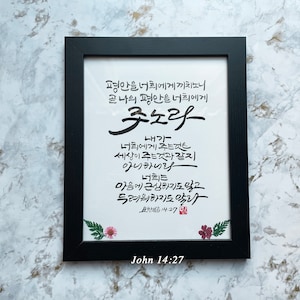 평안을 너희에게 끼치노니
곧 나의 평안을 너희에게
주노라
내가
너희에게 주는 것은
세상이 주는 것과 같지
아니하니라
너희는
마음에 근심하지도 말고
두려워하지도 말라
요한복음 14:27
John 14:27